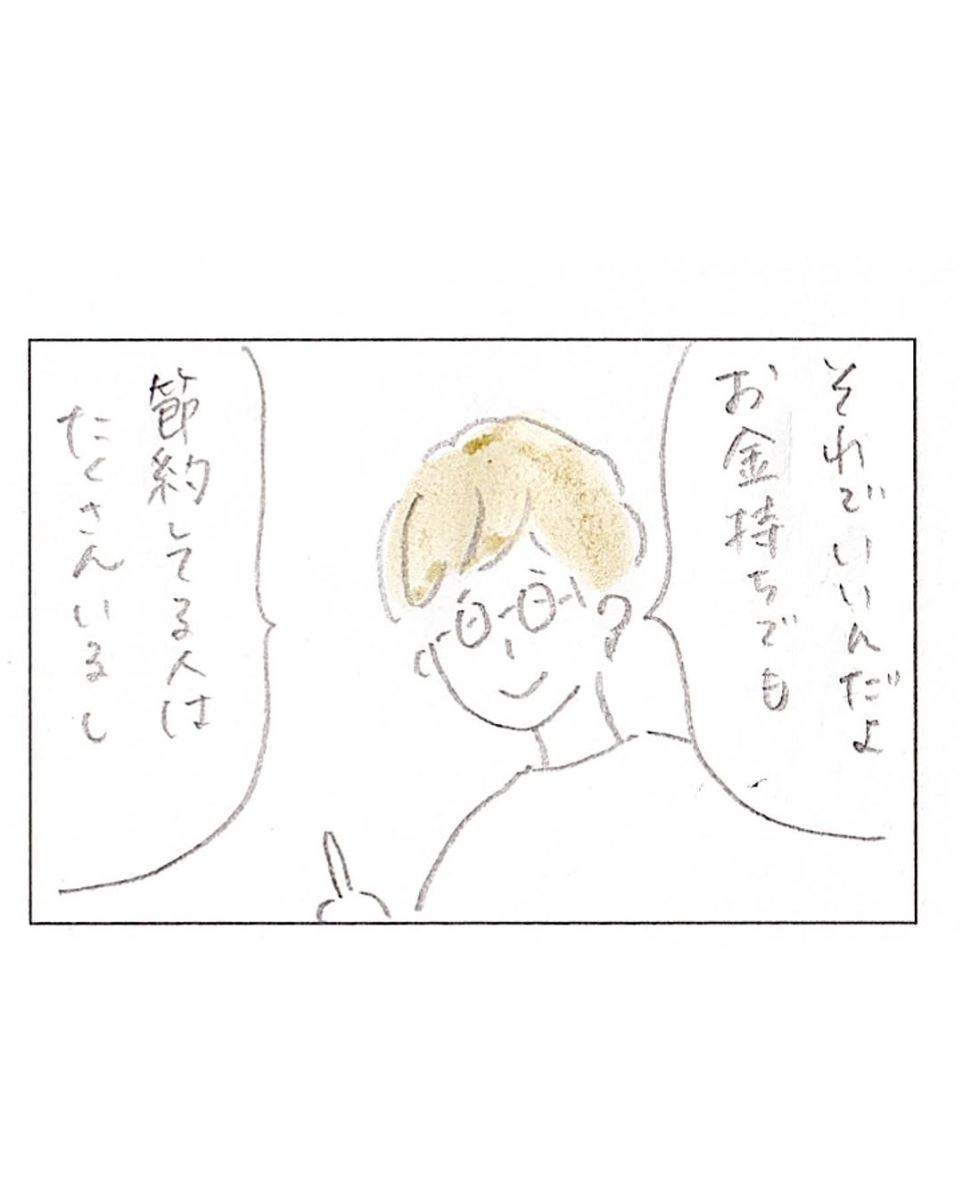 それでいいんだよ
お金持ちでも
節約してる人は
たくさんいるし